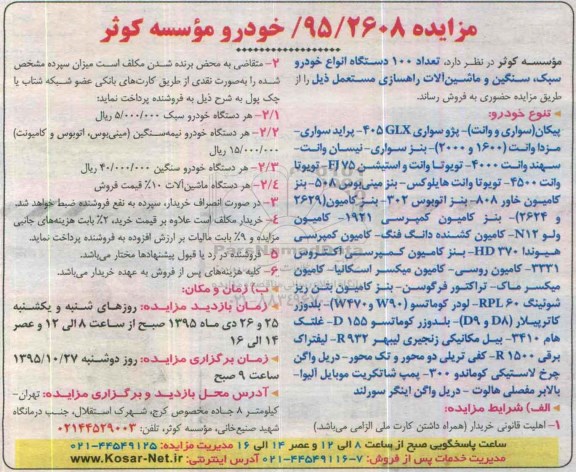 مزایده ۹۵/۲۶۰۸/ خودرو مؤسسه کوثر
مؤسسه کوثر در نظر دارد، تعداد ۱۰۰ دستگاه انواع خودرو
سبک، سنگین و ماشین‌آلات راهسازی مستعمل ذیل را از
طریق مزایده حضوری به فروش رساند.
تنوع خودرو:
پیکان(سواری و وانت)- پژو سواری ۴۰۵GLX- پراید سواری-
مزدا وانت (۱۶۰۰ و ۲۰۰۰)- بنز سواری- نیسان وانت-
سهند وانت ۴۰۰۰- تویوتا وانت و استیشن FJ ۷۵- تویوتا
وانت ۴۵۰۰- تویوتا وانت هایلوکس- بنز مینی‌بوس ۵۰۸- بنز
کامیون خاور ۸۰۸- بنز اتوبوس ۳۰۲- بنز کامیون(۲۶۲۹
و ۲۶۲۴)- بنز کامیون کمپرسی ۱۹۲۱- کامیون
ولو N۱۲- کامیون کشنده دانگ فنگ- کامیون کمپرسی
هیوندا HD ۳۷۰- بنز کامیون کمپرسی اکتروس
۳۳۳۱- کامیون روسی- کامیون میکسر اسکانیا- کامیون
میکسر ماک- تراکتور فرگوسن- بنز کامیون بتن ریز
شوئینگ RPL ۶۰- لودر کوماتسو (W ۹۰ و W۴۷۰)- بلدوزر
کاترپیلار (D۸ و D۹)- بلدوزر کوماتسو D ۱۵۵- غلتک
هام ۳۴۱۰- بیل مکانیکی زنجیری لیبهر R ۹۳۲- لیفتراک
برقی R ۱۵۰۰- کفی تریلی دو محور و تک محور- دریل واگن
چرخ لاستیکی کوماندو ۳۰۰- پمپ شاتکریت موبایل آلیوا-
بالابر مفصلی هالوت - دریل واگن اینگر سورلند
الف) شرایط مزایده:
۱- اهلیت قانونی خریدار (همراه داشتن کارت ملی الزامی می‌باشد)
۲- متقاضی به محض برنده شدن مکلف است میزان سپرده مشخص
شده را به‌صورت نقدی از طریق کارت‌های بانکی عضو شبکه شتاب یا
چک پول به شرح ذیل به فروشنده پرداخت نماید:
۲/۱- هر دستگاه خودرو سبک ۵/۰۰۰/۰۰۰ ریال
۲/۲- هر دستگاه خودرو نیمه‌سنگین (مینی‌بوس، اتوبوس و کامیونت)
۱۵/۰۰۰/۰۰۰ ریال
۲/۳- هر دستگاه خودرو سنگین ۴۰/۰۰۰/۰۰۰ ریال
۲/۴- هر دستگاه ماشین‌آلات ۱۰٪ قیمت فروش
۳- در صورت انصراف خریدار، سپرده به نفع فروشنده ضبط خواهد شد.
۴- خریدار مکلف است علاوه بر قیمت خرید، ۲٪ بابت هزینه‌های جانبی
مزایده و ۹٪ بابت مالیات بر ارزش افزوده به فروشنده پرداخت نماید.
۵- فروشنده در رد یا قبول پیشنهادها مختار می‌باشد.
۶- کلیه هزینه‌های پس از فروش به عهده خریدار می‌باشد.
ب) زمان و مکان:
زمان بازدید مزایده: روزهای شنبه و یکشنبه
۲۵ و ۲۶ دی ماه ۱۳۹۵ صبح از ساعت ۸ الی ۱۲ و عصر
۱۴ الی ۱۶
زمان برگزاری مزایده: روز دوشنبه ۱۳۹۵/۱۰/۲۷
ساعت ۹ صبح
آدرس محل بازدید و برگزاری مزایده: تهران-
کیلومتر ۸ جاده مخصوص کرج، شهرک استقلال، جنب درمانگاه
شهید صنیع‌خانی، مؤسسه کوثر، تلفن: ۰۲۱۴۴۵۲۹۰۰۳
ساعت پاسخگویی صبح از ساعت ۸ الی ۱۲ و عصر ۱۴ الی ۱۶ مدیریت مزایده: ۴۴۵۴۹۱۲۵-۰۲۱
مدیریت خدمات پس از فروش: ۷-۴۴۵۴۹۱۱۶-۰۲۱ آدرس اینترنتی: www.Kosar-Net.ir